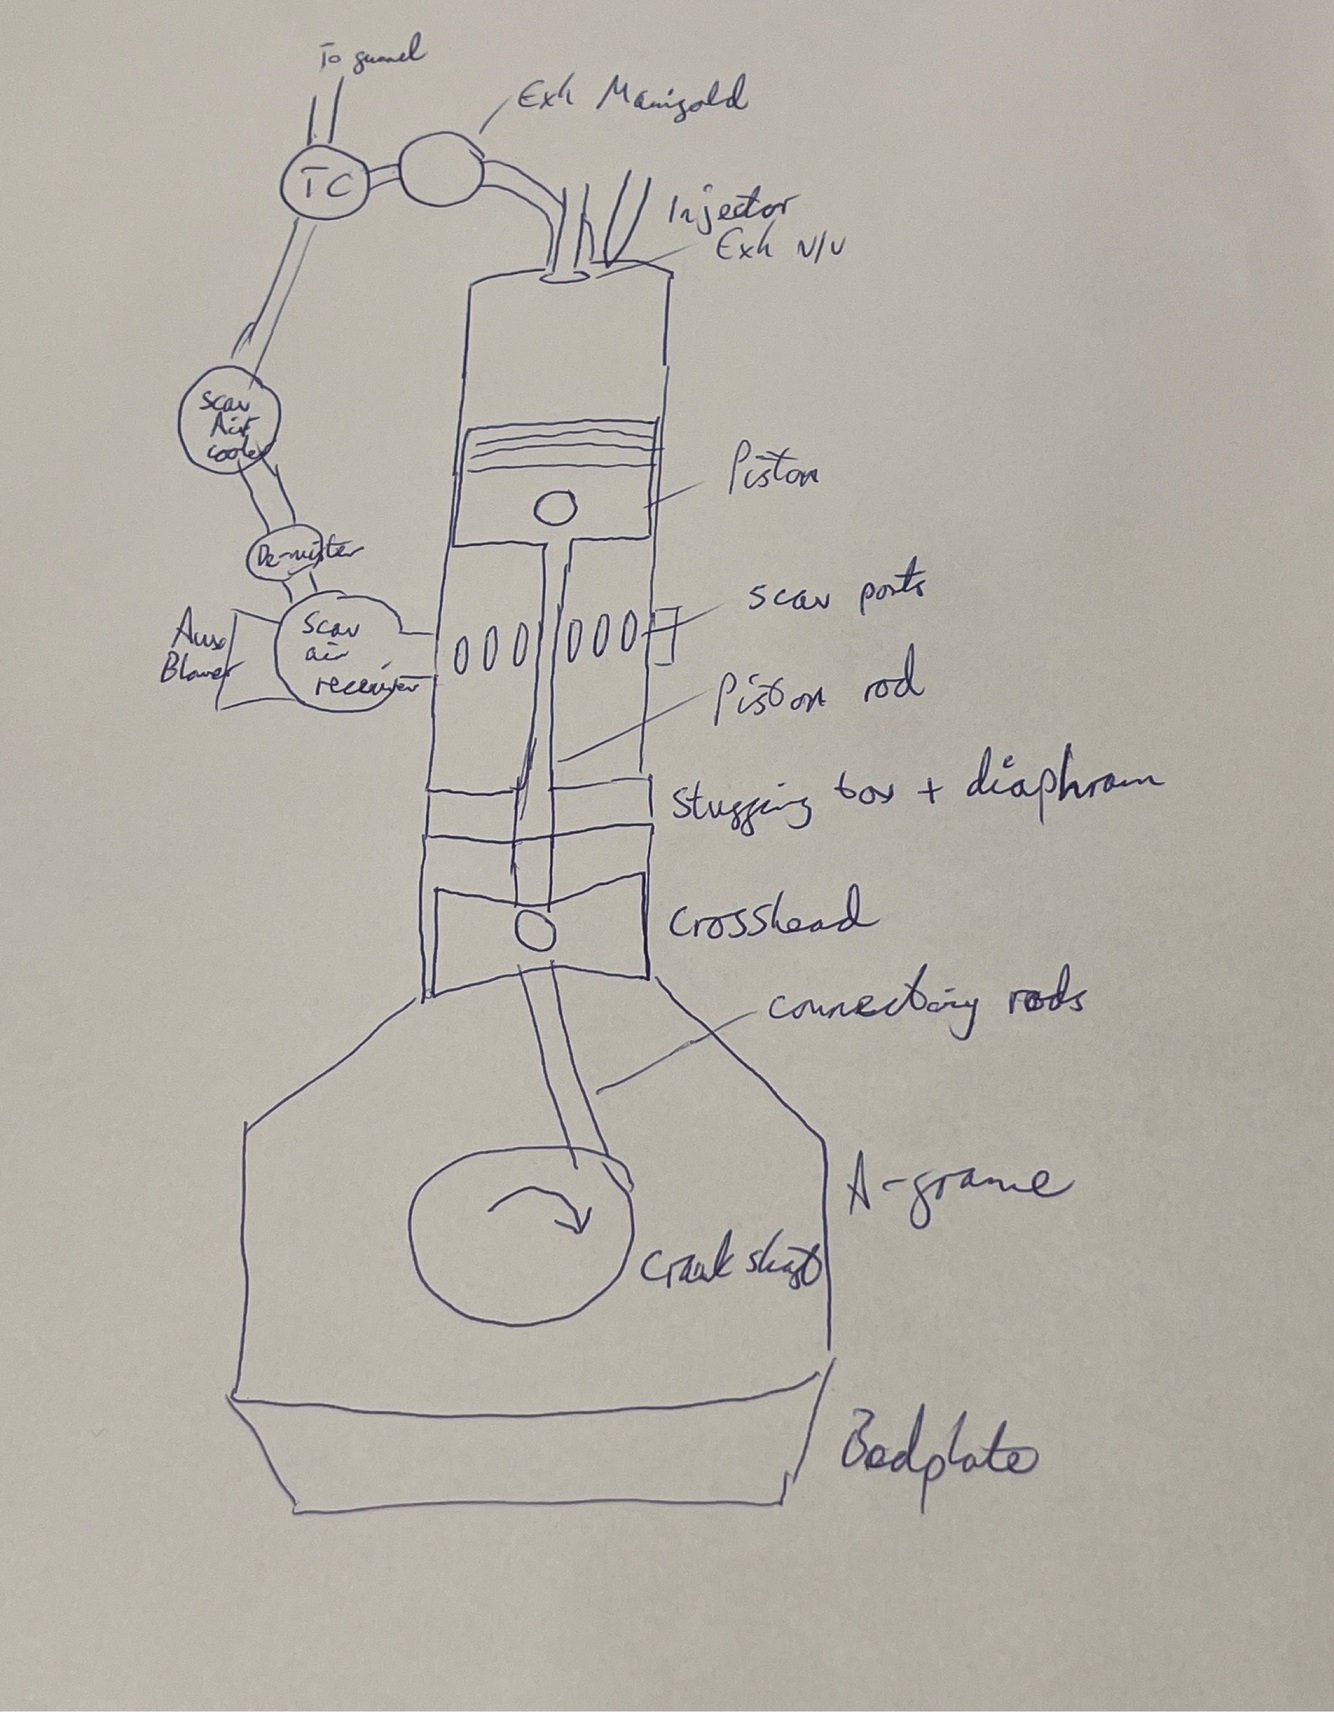 To funnel
Exh Manifold
TC
Injector
Exh v/v
Scav
Air
cooler
Piston
De-mister
scav ports
Aux
Blower
Scav
air
receiver
Piston rod
Stuffing box + diaphram
Crosshead
connecting rods
A-frame
Crankshaft
Bedplate